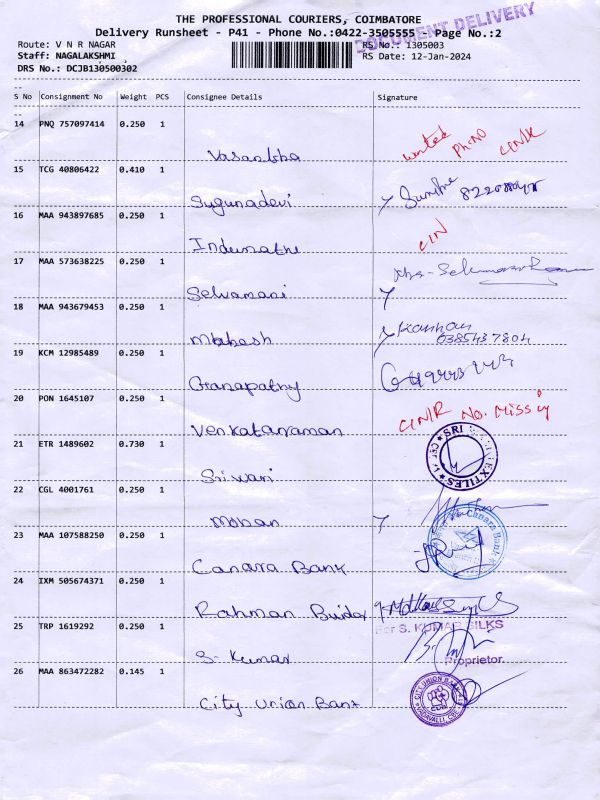 THE PROFESSIONAL COURIERS, COIMBATORE
DOCUMENT DELIVERY
Delivery Runsheet - P41 - Phone No.:0422-3505555 - Page No.:2
Route: V N R NAGAR RS No.: 1305003
Staff: NAGALAKSHMI RS Date: 12-Jan-2024
DRS No.: DCJB130500302
S No Consignment No Weight PCS Consignee Details Signature
14 PNQ 757097414 0.250 1
Vasantha wanted Ph.no
15 TCG 40806422 0.410 1
Sugunadevi
16 MAA 943897685 0.250 1
17 MAA 573638225 0.250 1
Selvamani
18 MAA 943679453 0.250 1
Mahesh Kannan
19 KCM 12985489 0.250 1
Ganapathy
20 PON 1645107 0.250 1
Venkatanaman No. Missing
21 ETR 1489602 0.730 1
Sriwari SRI TEXTILES
22 CGL 4001761 0.250 1
Mohan
23 MAA 107588250 0.250 1
Canara Bank Canara Bank
24 IXM 505674371 0.250 1
Rahman
25 TRP 1619292 0.250 1
For S. KUMAR SILKS
S. Kumar
Proprietor.
26 MAA 863472282 0.145 1
City Union Bank CITY UNION BANK
VADAVALLI, CBE